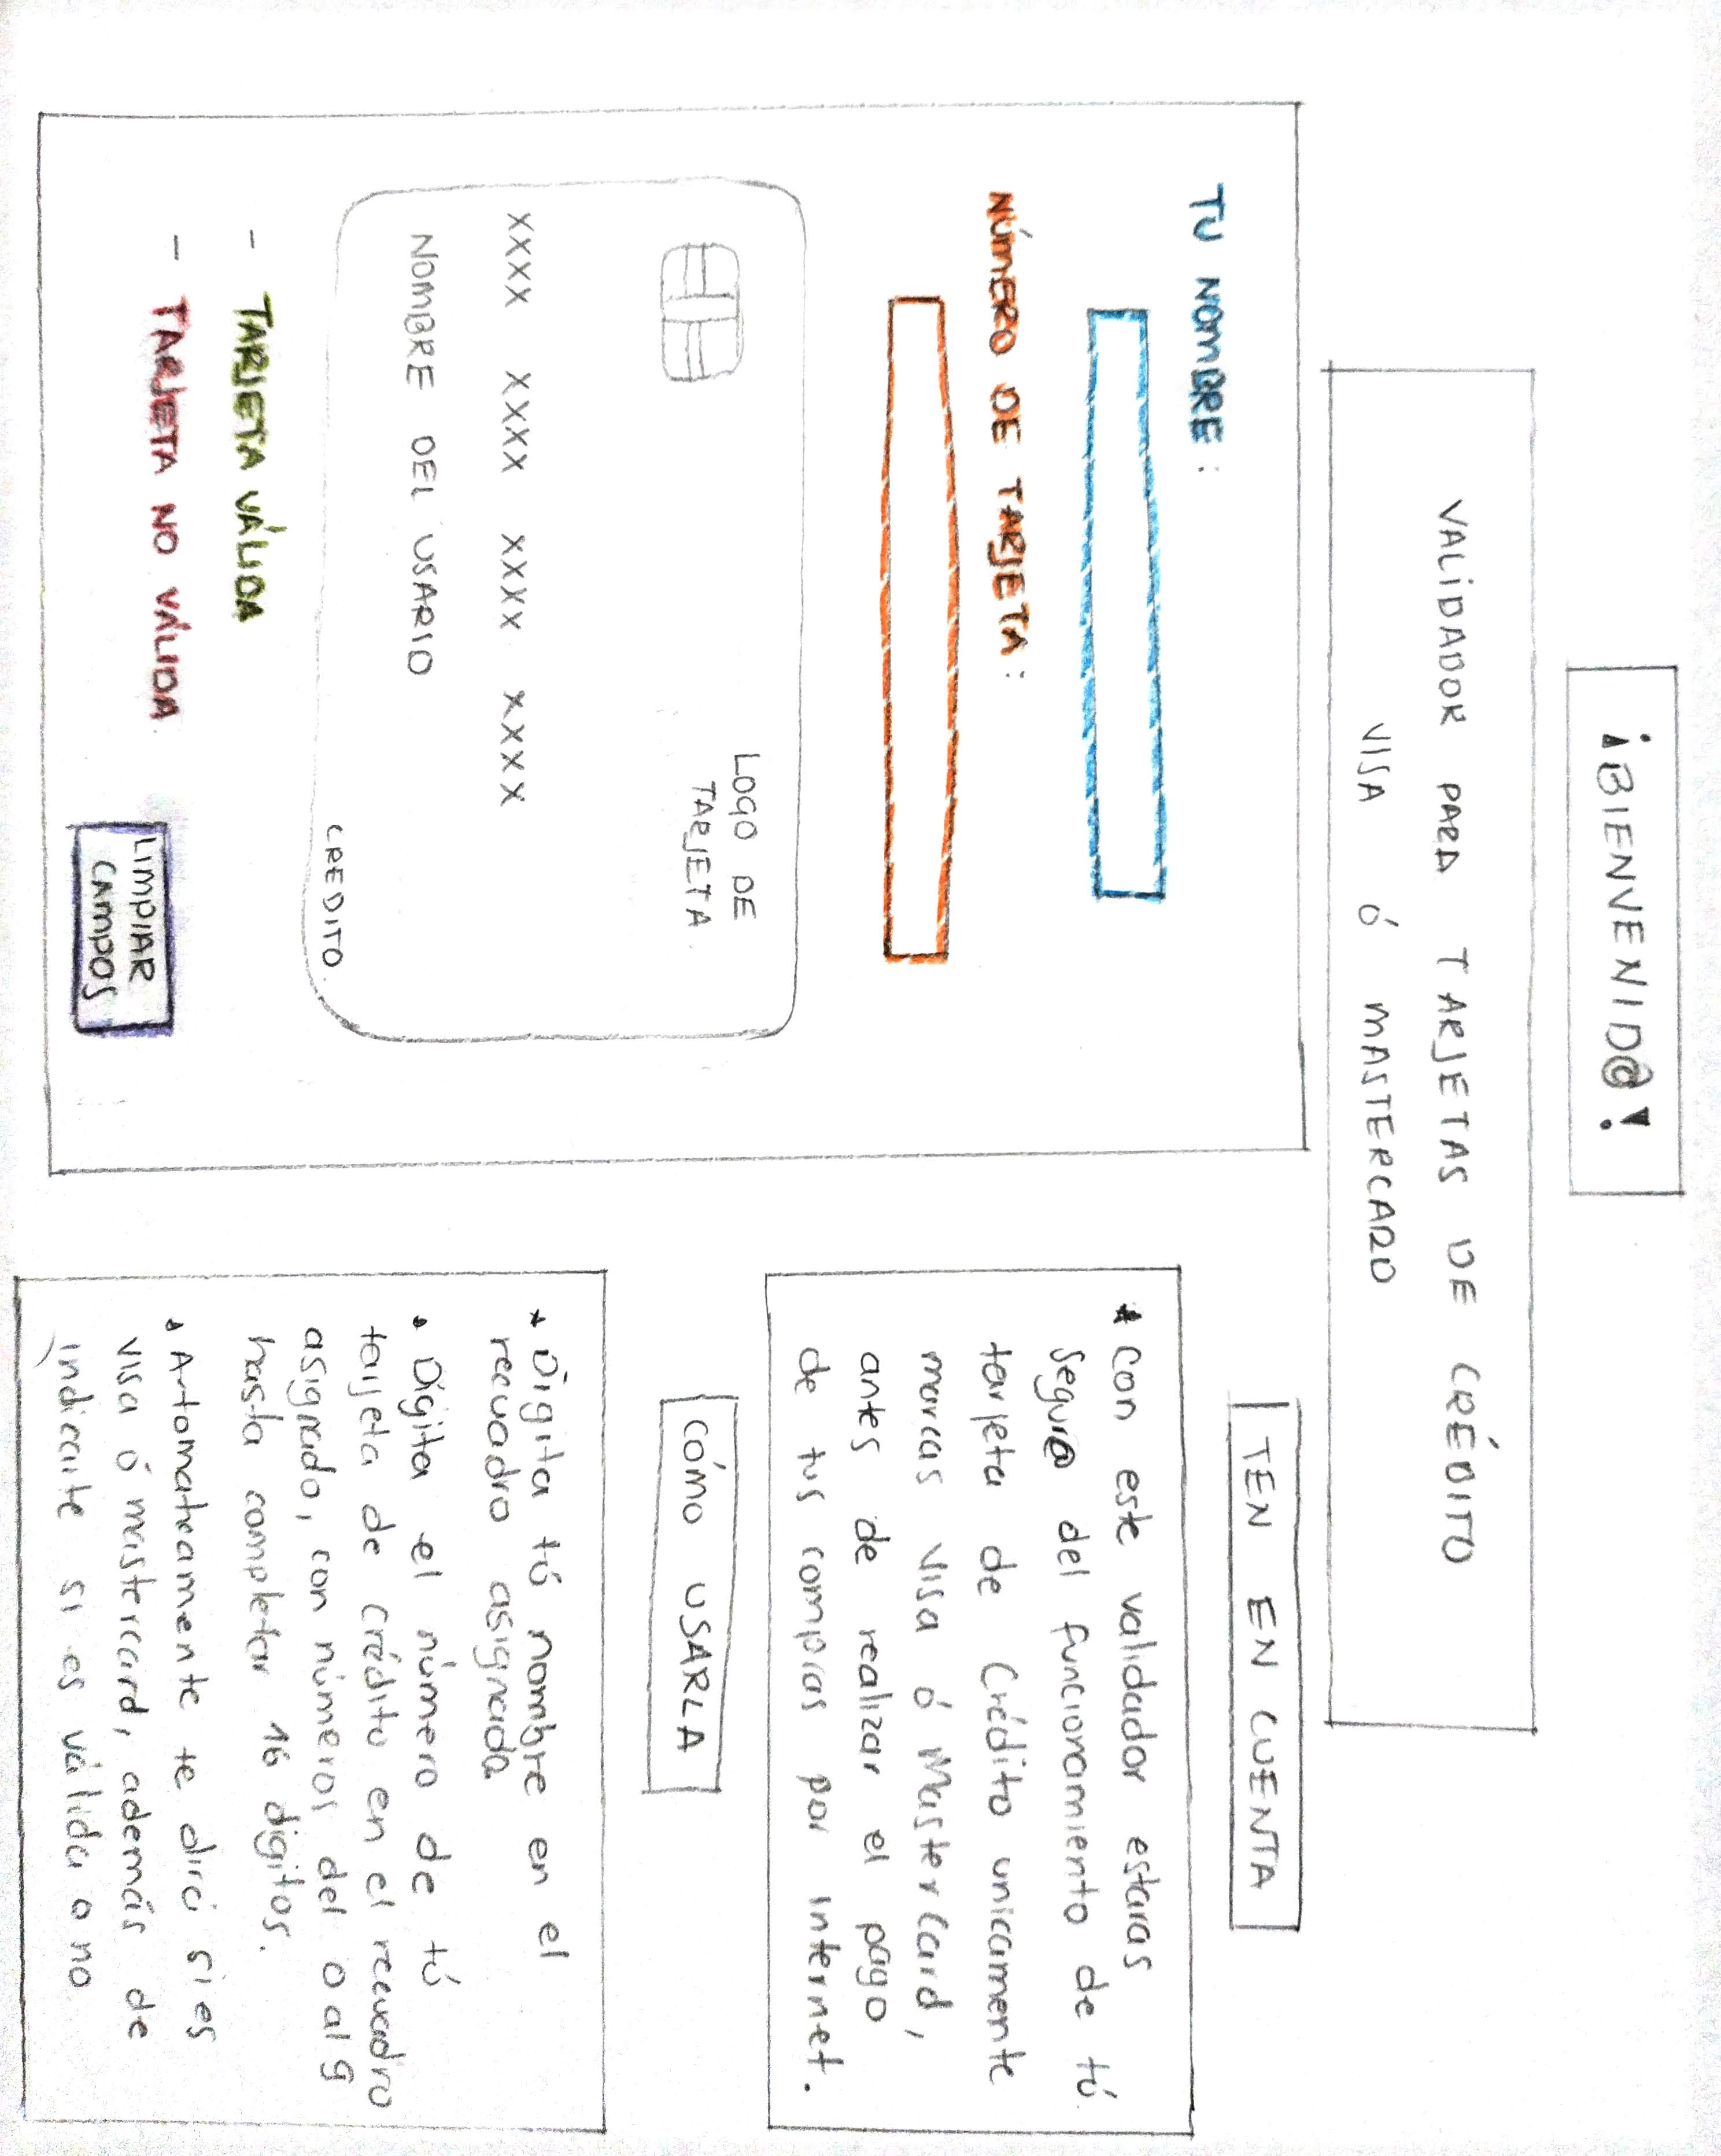 ¡BIENVENID@!
VALIDADOR PARA TARJETAS DE CRÉDITO
VISA ó MASTERCARD
TU NOMBRE:
NÚMERO DE TARJETA:
LOGO DE
TARJETA.
XXXX XXXX XXXX XXXX
NOMBRE DEL USARIO
CREDITO.
- TARJETA VÁLIDA
- TARJETA NO VÁLIDA.
LIMPIAR
CAMPOS
TEN EN CUENTA
* Con este validador estaras
segur@ del funcionamiento de tú
tarjeta de Crédito unicamente
marcas Visa ó MasterCard,
antes de realizar el pago
de tus compras por internet.
CÓMO USARLA
* Digita tú nombre en el
recuadro asignado
* Digita el número de tú
tarjeta de crédito en el recuadro
asignado, con números del 0 al 9
hasta completar 16 digitos.
* Automaticamente te dirá si es
visa ó mastercard, además de
indicarte si es válida o no